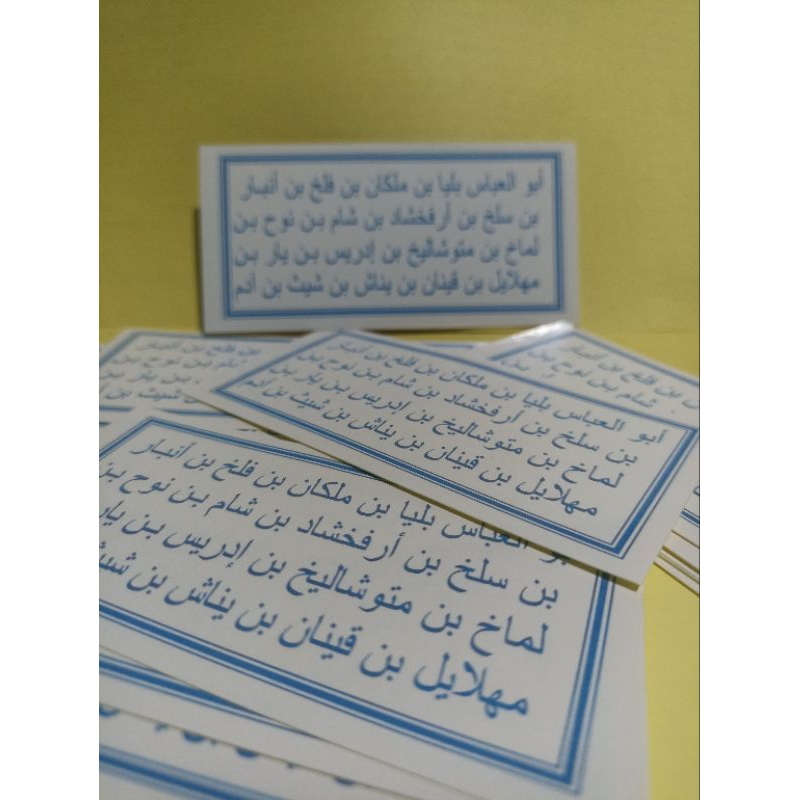 أبو العباس بليا بن ملكان بن فلخ بن أنبار
بن سلخ بن أرفخشاد بن شام بن نوح بن
لماخ بن متوشاليخ بن إدريس بن يار بن
مهلايل بن قينان بن يناش بن شيث بن آدم
أبو العباس بليا بن ملكان بن فلخ بن أنبار
بن سلخ بن أرفخشاد بن شام بن نوح بن
لماخ بن متوشاليخ بن إدريس بن يار بن
مهلايل بن قينان بن يناش بن شيث بن آدم
العباس بليا بن ملكان بن فلخ بن أنبار
بن سلخ بن أرفخشاد بن شام بن نوح بن
لماخ بن متوشاليخ بن إدريس بن يار
مهلايل بن قينان بن يناش بن شيث
بن فلخ بن أنبار
شام بن نوح بن